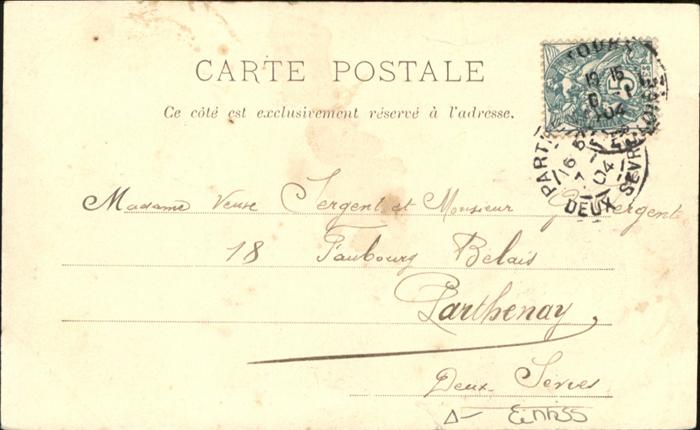 CARTE POSTALE
Ce côté est exclusivement réservé à l'adresse.
5
04
PARTHENAY
16
04
DEUX SEVRES
Madame Veuve Sergent et Monsieur Sergent
18 Faubourg Belais
Parthenay
Deux Sèvres